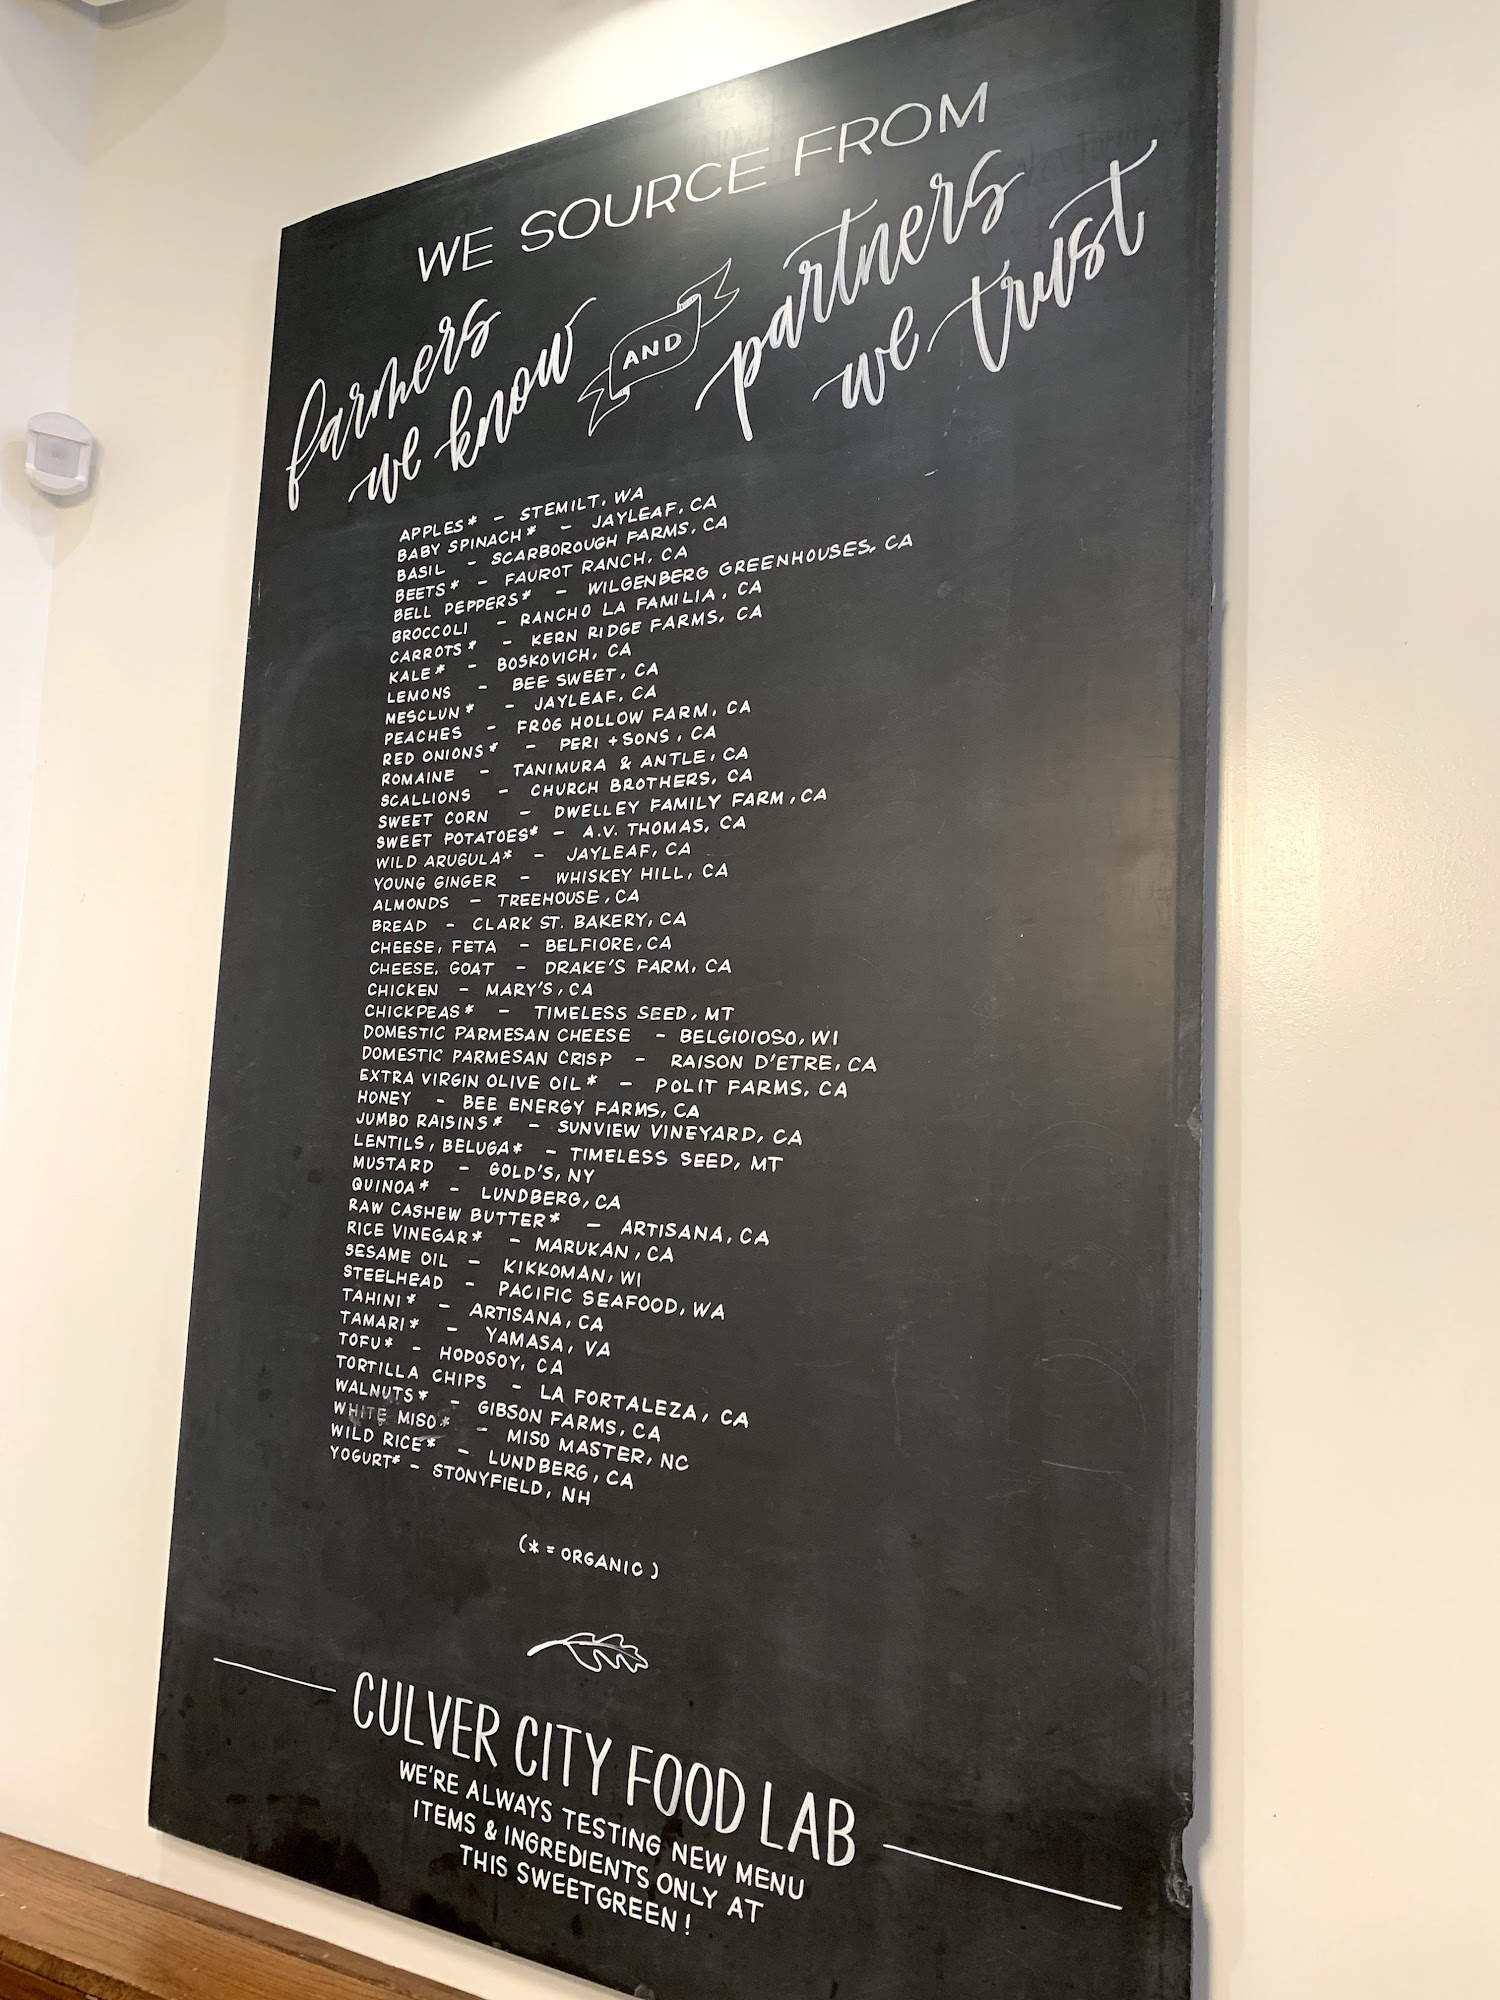 WE SOURCE FROM
farmers
we know
AND
partners
we trust
APPLES* - STEMILT, WA
BABY SPINACH* - JAYLEAF, CA
BASIL - SCARBOROUGH FARMS, CA
BEETS* - FAUROT RANCH, CA
BELL PEPPERS* - WILGENBERG GREENHOUSES, CA
BROCCOLI - RANCHO LA FAMILIA, CA
CARROTS* - KERN RIDGE FARMS, CA
KALE* - BOSKOVICH, CA
LEMONS - BEE SWEET, CA
MESCLUN* - JAYLEAF, CA
PEACHES - FROG HOLLOW FARM, CA
RED ONIONS* - PERI + SONS, CA
ROMAINE - TANIMURA & ANTLE, CA
SCALLIONS - CHURCH BROTHERS, CA
SWEET CORN - DWELLEY FAMILY FARM, CA
SWEET POTATOES* - A.V. THOMAS, CA
WILD ARUGULA* - JAYLEAF, CA
YOUNG GINGER - WHISKEY HILL, CA
ALMONDS - TREEHOUSE, CA
BREAD - CLARK ST. BAKERY, CA
CHEESE, FETA - BELFIORE, CA
CHEESE, GOAT - DRAKE'S FARM, CA
CHICKEN - MARY'S, CA
CHICKPEAS* - TIMELESS SEED, MT
DOMESTIC PARMESAN CHEESE - BELGIOIOSO, WI
DOMESTIC PARMESAN CRISP - RAISON D'ETRE, CA
EXTRA VIRGIN OLIVE OIL* - POLIT FARMS, CA
HONEY - BEE ENERGY FARMS, CA
JUMBO RAISINS* - SUNVIEW VINEYARD, CA
LENTILS, BELUGA* - TIMELESS SEED, MT
MUSTARD - GOLD'S, NY
QUINOA* - LUNDBERG, CA
RAW CASHEW BUTTER* - ARTISANA, CA
RICE VINEGAR* - MARUKAN, CA
SESAME OIL - KIKKOMAN, WI
STEELHEAD - PACIFIC SEAFOOD, WA
TAHINI* - ARTISANA, CA
TAMARI* - YAMASA, VA
TOFU* - HODOSOY, CA
TORTILLA CHIPS - LA FORTALEZA, CA
WALNUTS* - GIBSON FARMS, CA
WHITE MISO* - MISO MASTER, NC
WILD RICE* - LUNDBERG, CA
YOGURT* - STONYFIELD, NH
(* = ORGANIC)
CULVER CITY FOOD LAB
WE'RE ALWAYS TESTING NEW MENU
ITEMS & INGREDIENTS ONLY AT
THIS SWEETGREEN!